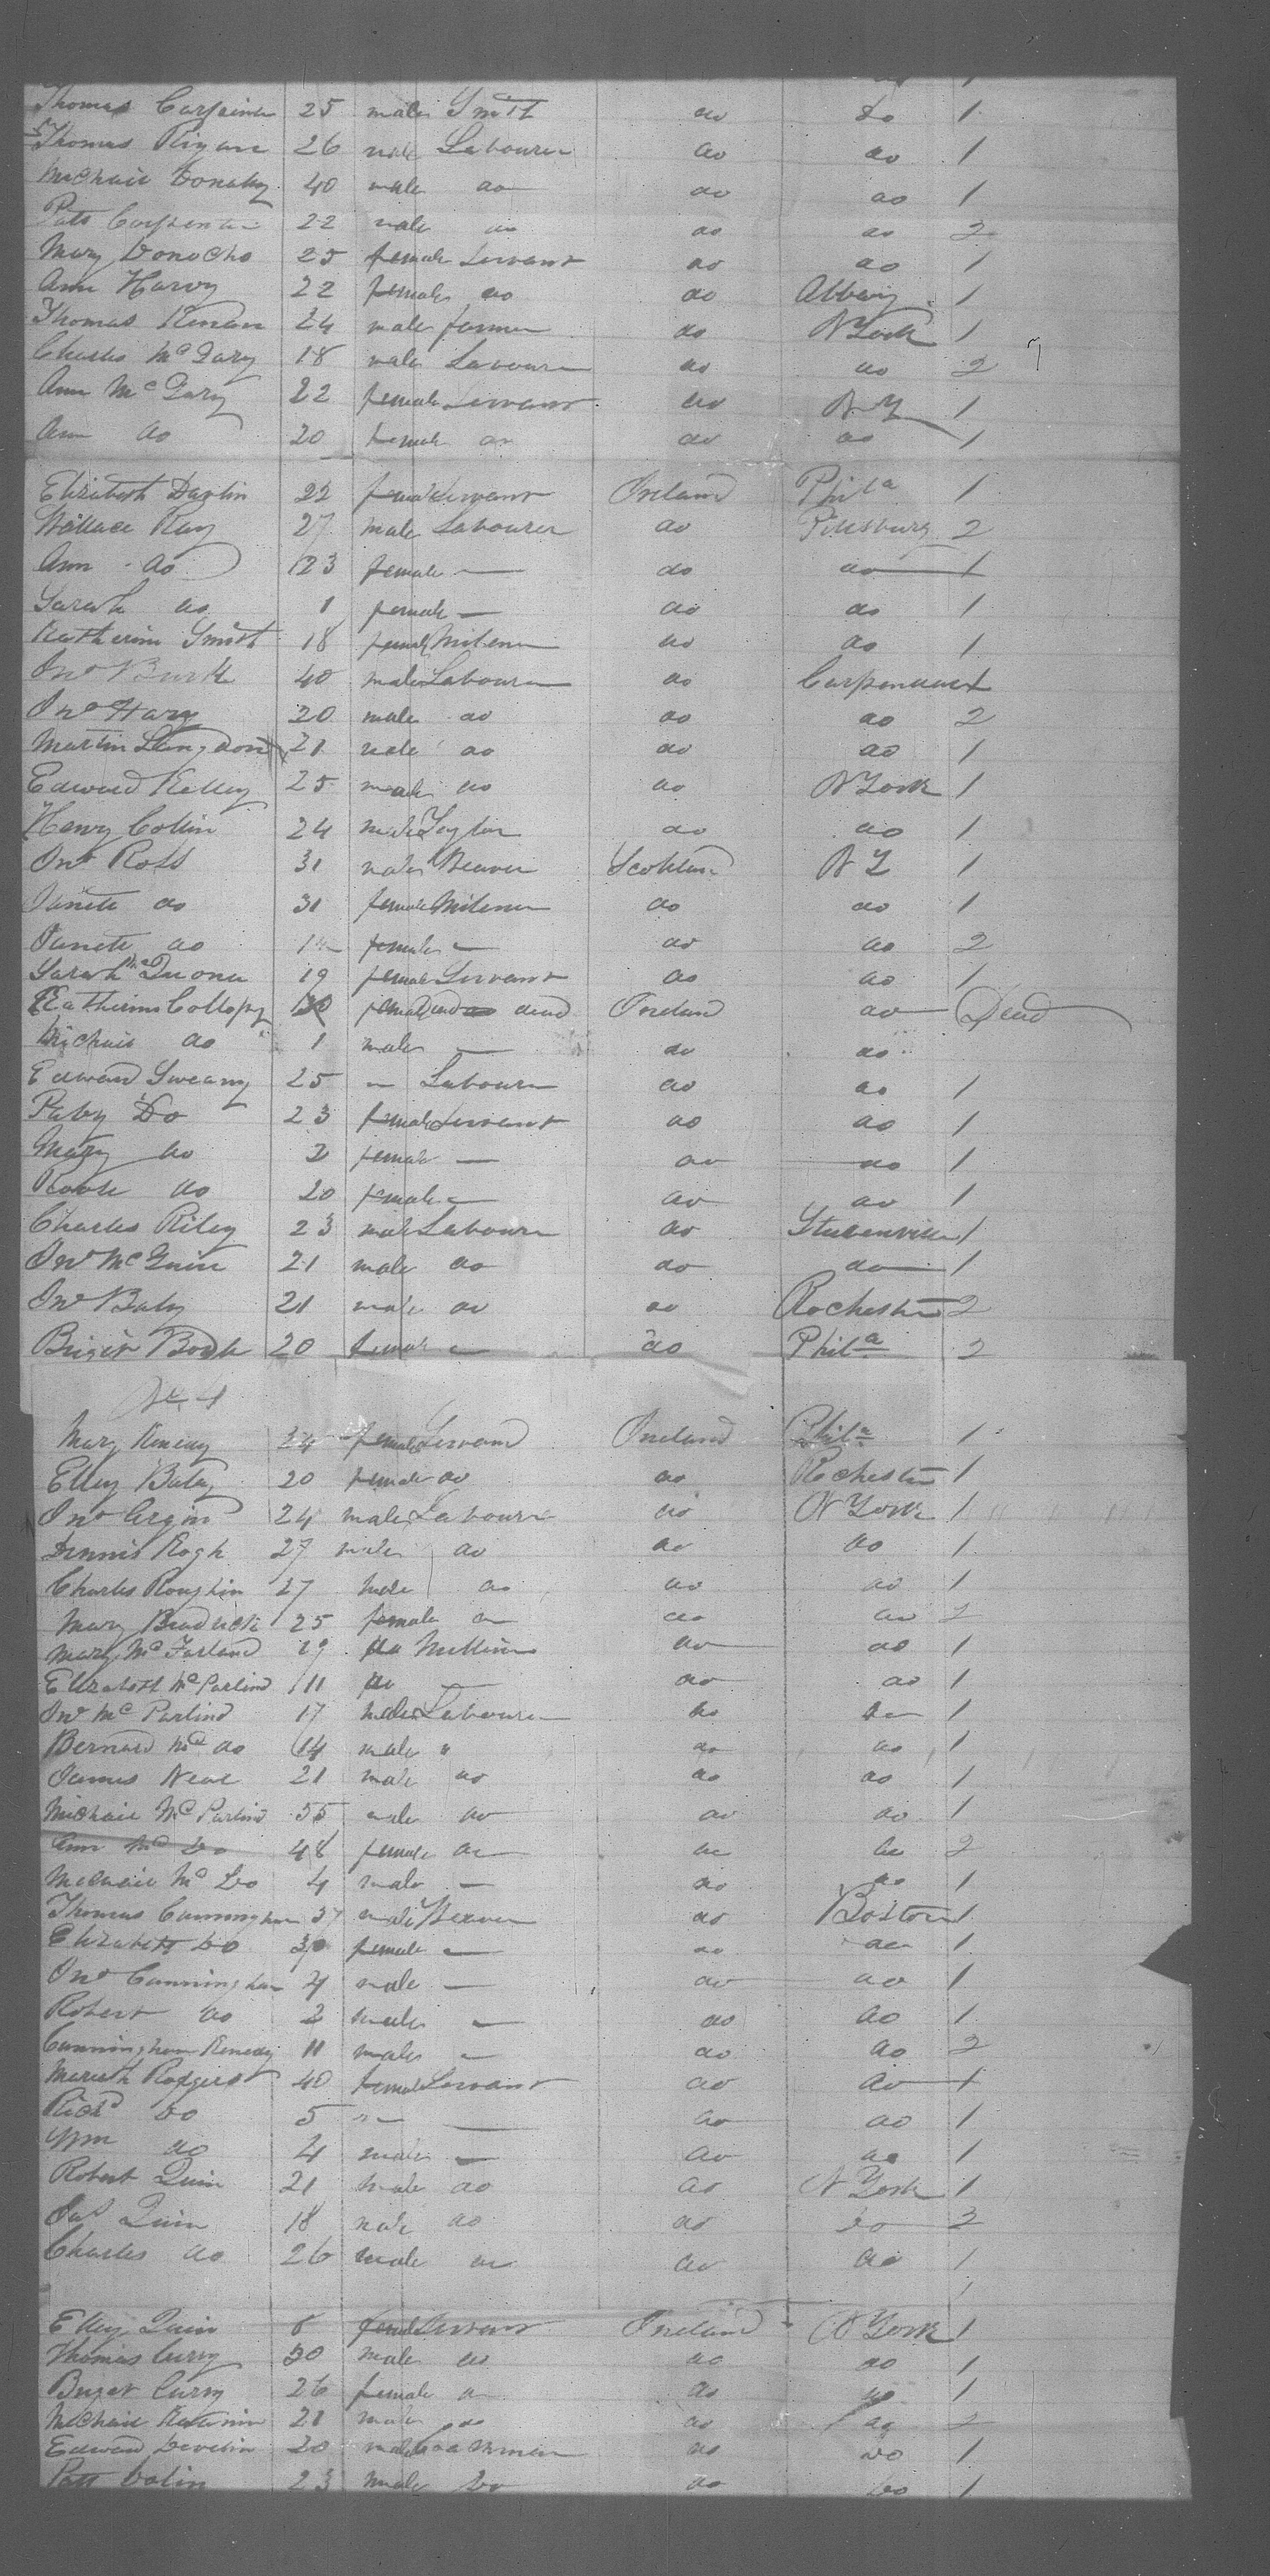 Thomas Carpinter 25 male Smith do do 1
Thomas Rigan 26 male Labourer do do 1
Michail Donahy 40 male do do do 1
Patt Carpenter 22 male do do do 2
Mary Donocho 25 female Servant do do 1
Ann Harvy 22 female do do Albany 1
Thomas Kenan 24 male farmer do N York 1
Charles Mc Gary 18 male Labourer do do 2
Ann Mc Gary 22 female Servant do N Y 1
Ann do 20 female do do do 1
Elizabeth Davlin 22 female Servant Ireland Phila 1
Wallace Ray 27 male Labourer do Pittsburg 2
Ann do 23 female — do do 1
Sarah do 1 female — do do 1
Katherine Smith 18 female Milener do do 1
Jno Burk 40 male Labourer do 1
Jno Hary 20 male do do do 2
Martin Langdon 21 male do do do 1
Edward Kelley 25 male do do N York 1
Henry Collin 24 male Taylor do do 1
Jno Ross 31 male Weaver Scotland N Y 1
Janete do 31 female Milener do do 1
Janete do female — do do 2
Sarah 19 female Servant do do 1
Katherine Collopy female dead Ireland do Dead
Michail do 1 male — do do
Edward Sweany 25 — Labourer do do 1
Patsy Do 23 female Servant do do 1
Mary do 2 female — do do 1
do 20 female — do do 1
Charles Riley 23 male Labourer do Stubenville 1
Jno Mc Guire 21 male do do do 1
Jno Baty 21 male do do Rochester 2
Briget 20 female — do Phila 2
No 4
Mary Kenedy 24 female Servant Ireland Phila 1
Elley Baty 20 female do do Rochester 1
Jno 24 male Labourer do N York 1
Dennis 27 male do do do 1
Charles 27 male do do do 1
Mary 25 female — do do 2
Mary Mc Farland 19 do Milliner do do 1
Elizabeth Mc Parlind 11 do — do do 1
Jno Mc Parlind 17 male Labourer do do 1
Bernard Mc do 14 male " do do 1
James Neal 21 male do do do 1
Michail Mc Parlind 55 male do do do 1
Ann Mc Do 48 female do do do 2
Michail Mc Do 4 male — do do 1
Thomas Cunningham 37 male Weaver do Boston 1
Elizabeth Do female — do do 1
Jno Cunningham 4 male — do do 1
Robert do 2 male — do do 1
Cunningham Kenedy 11 male — do do 2
Mariah Rodgers 40 female Servant do do 1
Richd Do 5 — do do 1
Wm do 4 male — do do 1
Robert Quin 21 male do do N York 1
Jas Quin 18 male do do do 2
Charles do 26 male do do do 1
Elley Quin female Servant Ireland N York 1
Thomas Curry 30 male do do do 1
Briget Curry 26 female do do 1
Michail 21 male do do do 2
Edward Devlin 20 male do do 1
Patt 23 male Do do Do 1